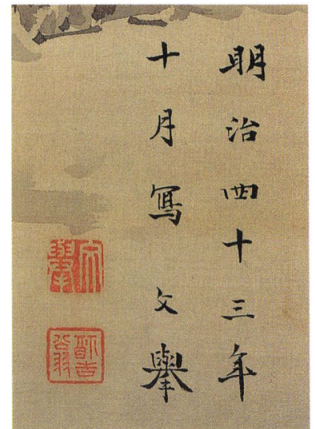 明治四十三年
十月写文挙